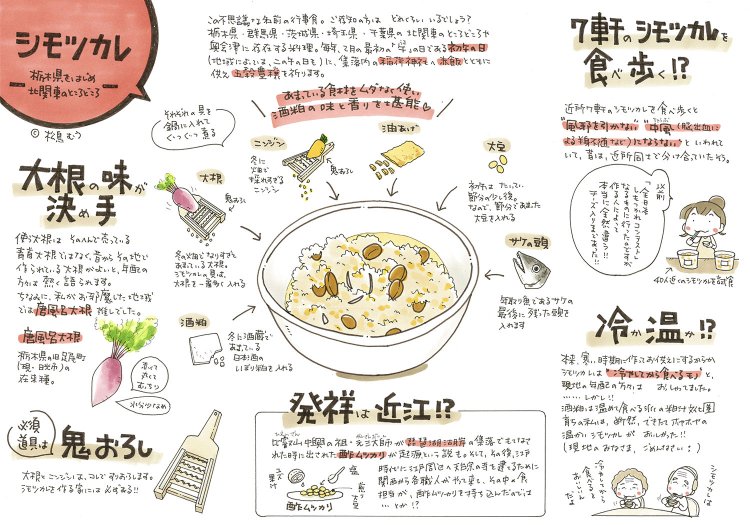 シモツカレ
栃木県をはじめ
北関東のところどころ
© 松鳥むう
この不思議な名前の行事食。ご存知の方は どれぐらい いるでしょう?
栃木県・群馬県・茨城県・埼玉県・千葉県の 北関東のところどころや
奥会津に存在する料理。毎年、2月の最初の「午」の日である初午の日
(地域によっては、二の午の日も)に、集落内の稲荷神社へ赤飯とともに
供え五穀豊穣を祈ります。
あまっている食材をムダなく使い
酒粕の味と香りをも堪能
それぞれの具を
鍋に入れて
ぐつぐつ煮る
ニンジン
冬に
畑で
採れすぎる
ニンジン
鬼おろし
油あげ
大豆
初午は たいてい
節分の少し後。
なので、節分であまった
大豆を入れる
大根
鬼おろし
冬の畑でなりすぎて
あまっている大根。
シモツカレの具は、
大根を一番多く入れる
サケの頭
年取り魚であるサケの
最後に残った頭を
入れます
酒粕
冬に酒蔵で
あまっている
日本酒の
しぼり粕を入れる
大根の味が
決め手
使う大根は そのへんで売っている
青首大根ではなく、昔からその地で
作られている大根がよいと、年配の
方々は熱く語られます。
ちなみに、私がお邪魔した地域
では唐風呂大根推しでした。
唐風呂大根
栃木県の旧足尾町
(現・日光市)の
在来種。
赤くて
太くて
むっちり
水分少なめ
必須
道具は
鬼おろし
大根とニンジンは、コレですりおろします。
シモツカレを作る家には必ずある!!
発祥は近江!?
比叡山中興の祖・元三大師が琵琶湖湖岸の集落でもてなさ
れた時に出された酢ムツカリが起源という説も。そして、その後、江戸
時代に江戸周辺の大きな寺を建てるために
関西から各職人がやって来て、その中の食
担当が、酢ムツカリを持ち込んだのでは
…とか!?
塩
煎り大豆
酢ムツカリ
7軒のシモツカレを
食べ歩く!?
近所7軒のシモツカレを食べ歩くと
"風邪を引かない""中風(脳出血に
よる半身不随など)にならない"といわれて
いて、昔は、近所同士で分け合っていたそう。
以前
「全日本
しもつかれ コンテスト」
なるものに行ったのですが
作る人によって
本当に全然違う!!
チーズ入りまであった!!
40人近くのシモツカレを試食
冷か温か!?
本来、寒い時期に作ってお供えにするからか
シモツカレは "冷やしてから食べるモノ" と、
現地の年配の方々は おしゃってました。
……しかし!!
酒粕は温めて食べる汁(の粕汁 放む)圏
育ちのムムは、断然、できたてホヤホヤの
温かいシモツカレが おいしかった!!
(現地のみなさま、ごめんなさい!)
シモツカレは
冷やしてから
食べると
おいしいん
だよ